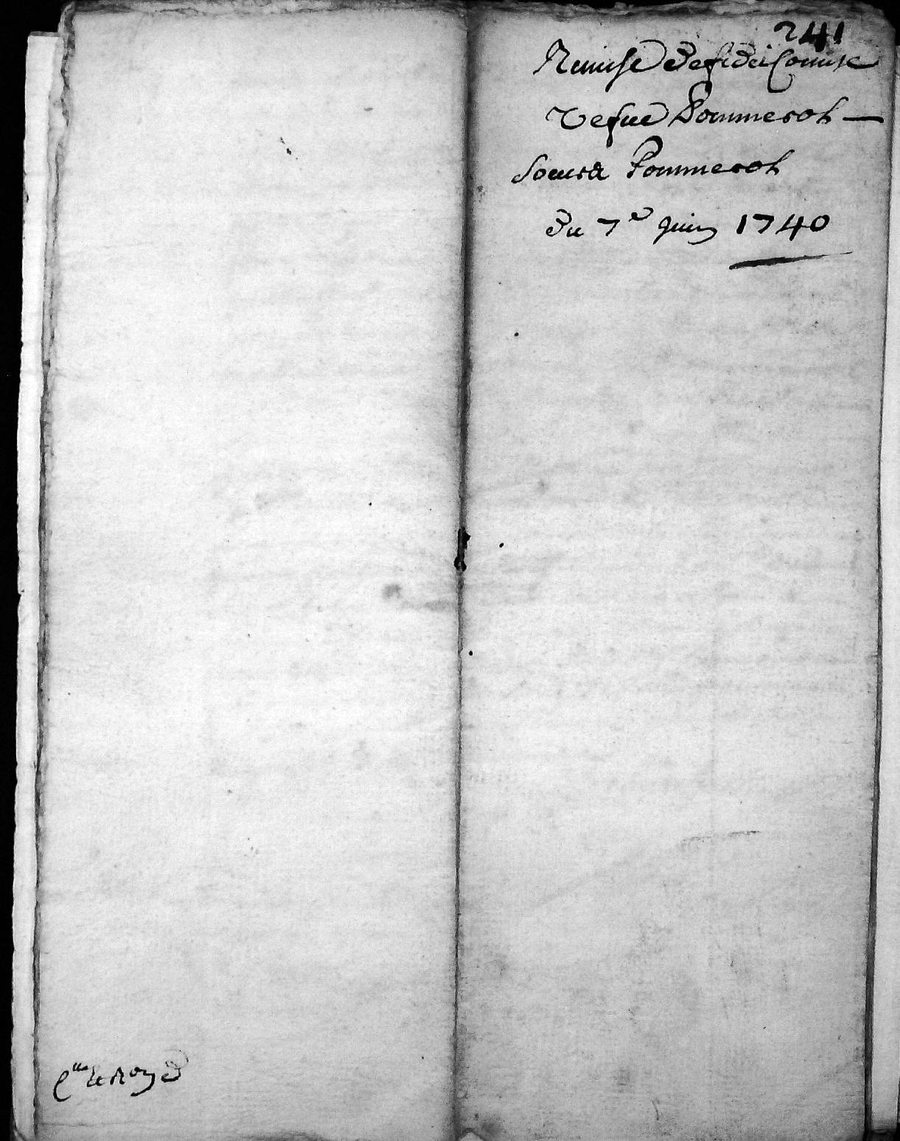 241
Remise de fidei Comise
Vefue Pommerol —
Pommerol
du 7e juin 1740